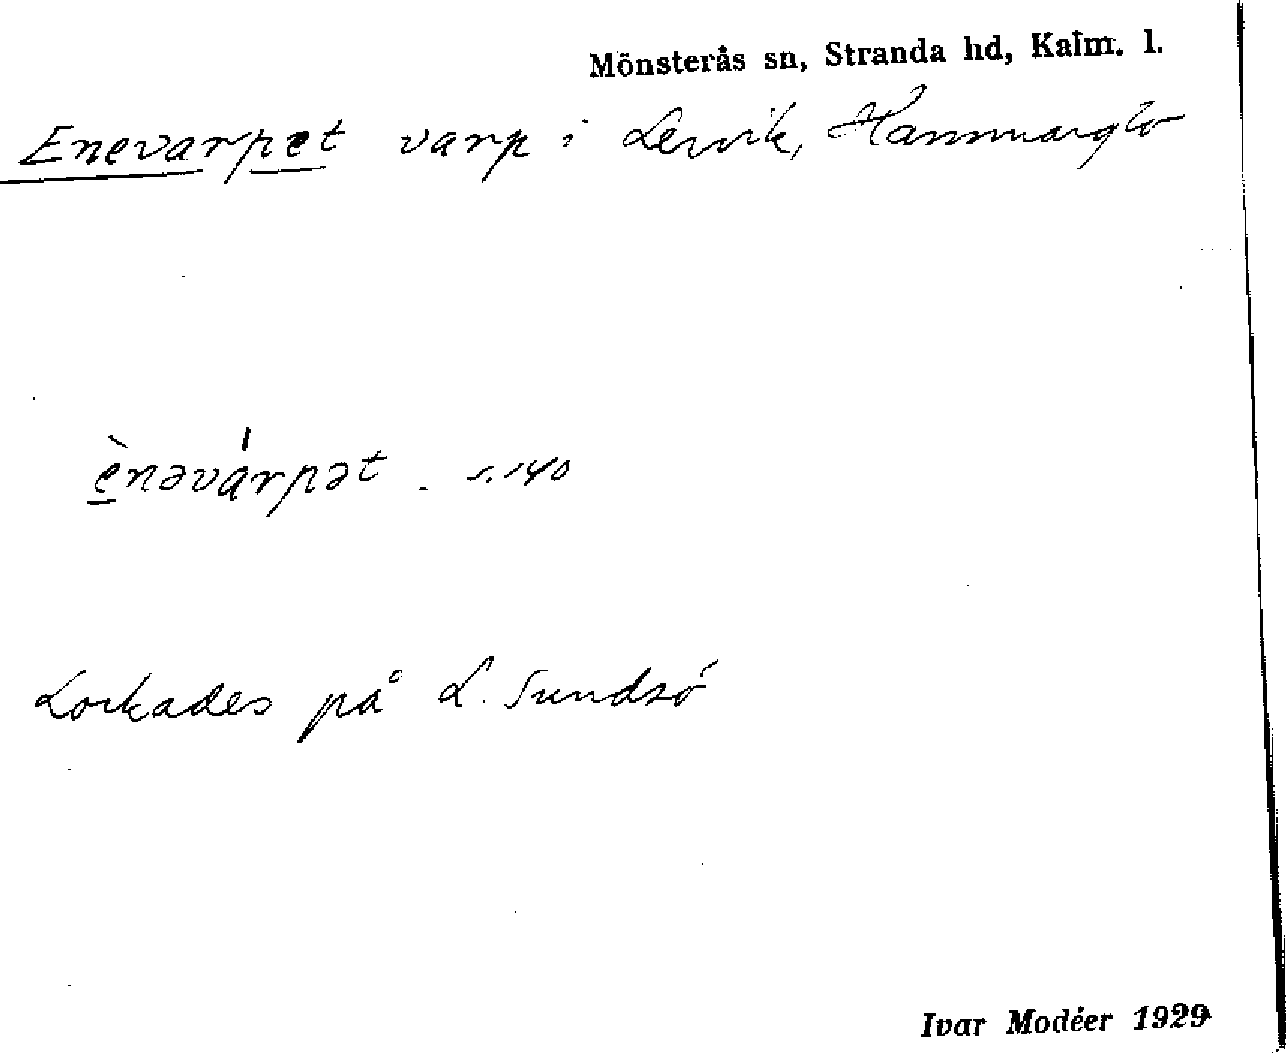 Mönsterås sn, Stranda hd, Kalm. l.
Enevarpet varp i Lervik, Hammarglo
è̱nəvárpət - s. 140
Lockades på L. Sundsö
Ivar Modéer 1929